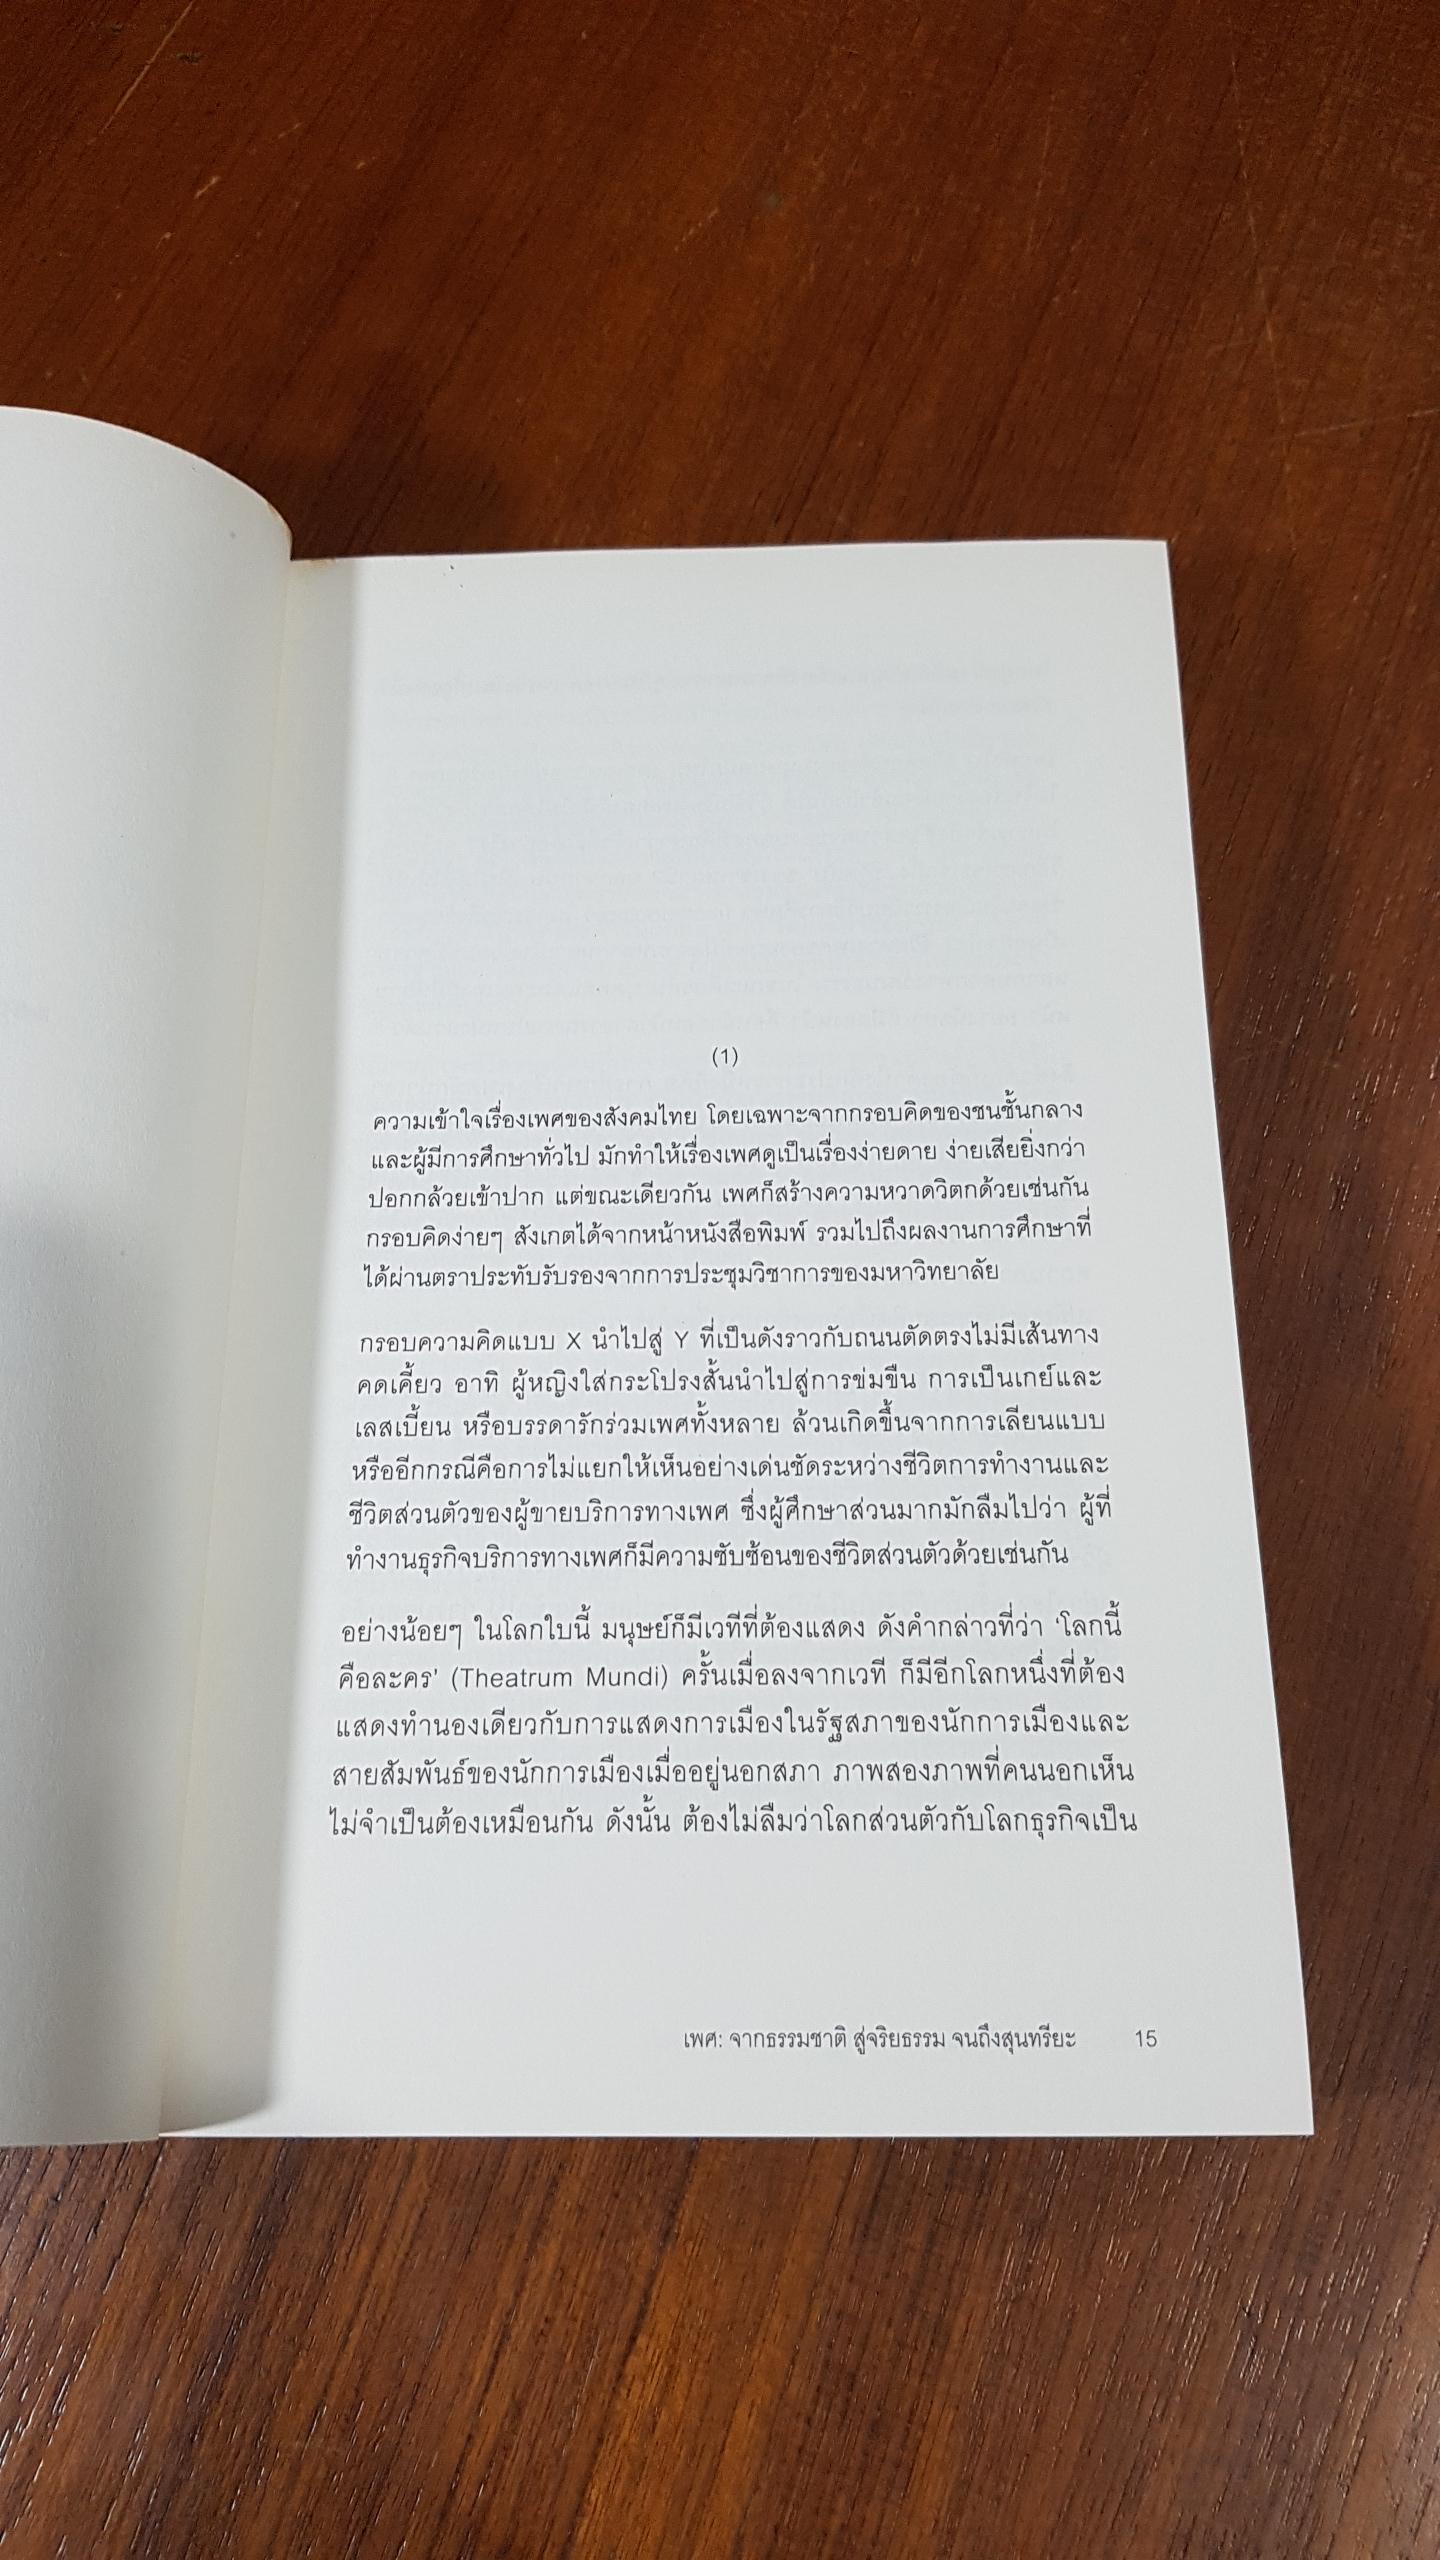 (1)
ความเข้าใจเรื่องเพศของสังคมไทย โดยเฉพาะจากกรอบคิดของชนชั้นกลาง
และผู้มีการศึกษาทั่วไป มักทำให้เรื่องเพศดูเป็นเรื่องง่ายดาย ง่ายเสียยิ่งกว่า
ปอกกล้วยเข้าปาก แต่ขณะเดียวกัน เพศก็สร้างความหวาดวิตกด้วยเช่นกัน
กรอบคิดง่ายๆ สังเกตได้จากหน้าหนังสือพิมพ์ รวมไปถึงผลงานการศึกษาที่
ได้ผ่านตราประทับรับรองจากการประชุมวิชาการของมหาวิทยาลัย
กรอบความคิดแบบ X นำไปสู่ Y ที่เป็นดังราวกับถนนตัดตรงไม่มีเส้นทาง
คดเคี้ยว อาทิ ผู้หญิงใส่กระโปรงสั้นนำไปสู่การข่มขืน การเป็นเกย์และ
เลสเบี้ยน หรือบรรดารักร่วมเพศทั้งหลาย ล้วนเกิดขึ้นจากการเลียนแบบ
หรืออีกกรณีคือการไม่แยกให้เห็นอย่างเด่นชัดระหว่างชีวิตการทำงานและ
ชีวิตส่วนตัวของผู้ขายบริการทางเพศ ซึ่งผู้ศึกษาส่วนมากมักลืมไปว่า ผู้ที่
ทำงานธุรกิจบริการทางเพศก็มีความซับซ้อนของชีวิตส่วนตัวด้วยเช่นกัน
อย่างน้อยๆ ในโลกใบนี้ มนุษย์ก็มีเวทีที่ต้องแสดง ดังคำกล่าวที่ว่า 'โลกนี้
คือละคร' (Theatrum Mundi) ครั้นเมื่อลงจากเวที ก็มีอีกโลกหนึ่งที่ต้อง
แสดงทำนองเดียวกับการแสดงการเมืองในรัฐสภาของนักการเมืองและ
สายสัมพันธ์ของนักการเมืองเมื่ออยู่นอกสภา ภาพสองภาพที่คนนอกเห็น
ไม่จำเป็นต้องเหมือนกัน ดังนั้น ต้องไม่ลืมว่าโลกส่วนตัวกับโลกธุรกิจเป็น
เพศ: จากธรรมชาติ สู่จริยธรรม จนถึงสุนทรียะ 15